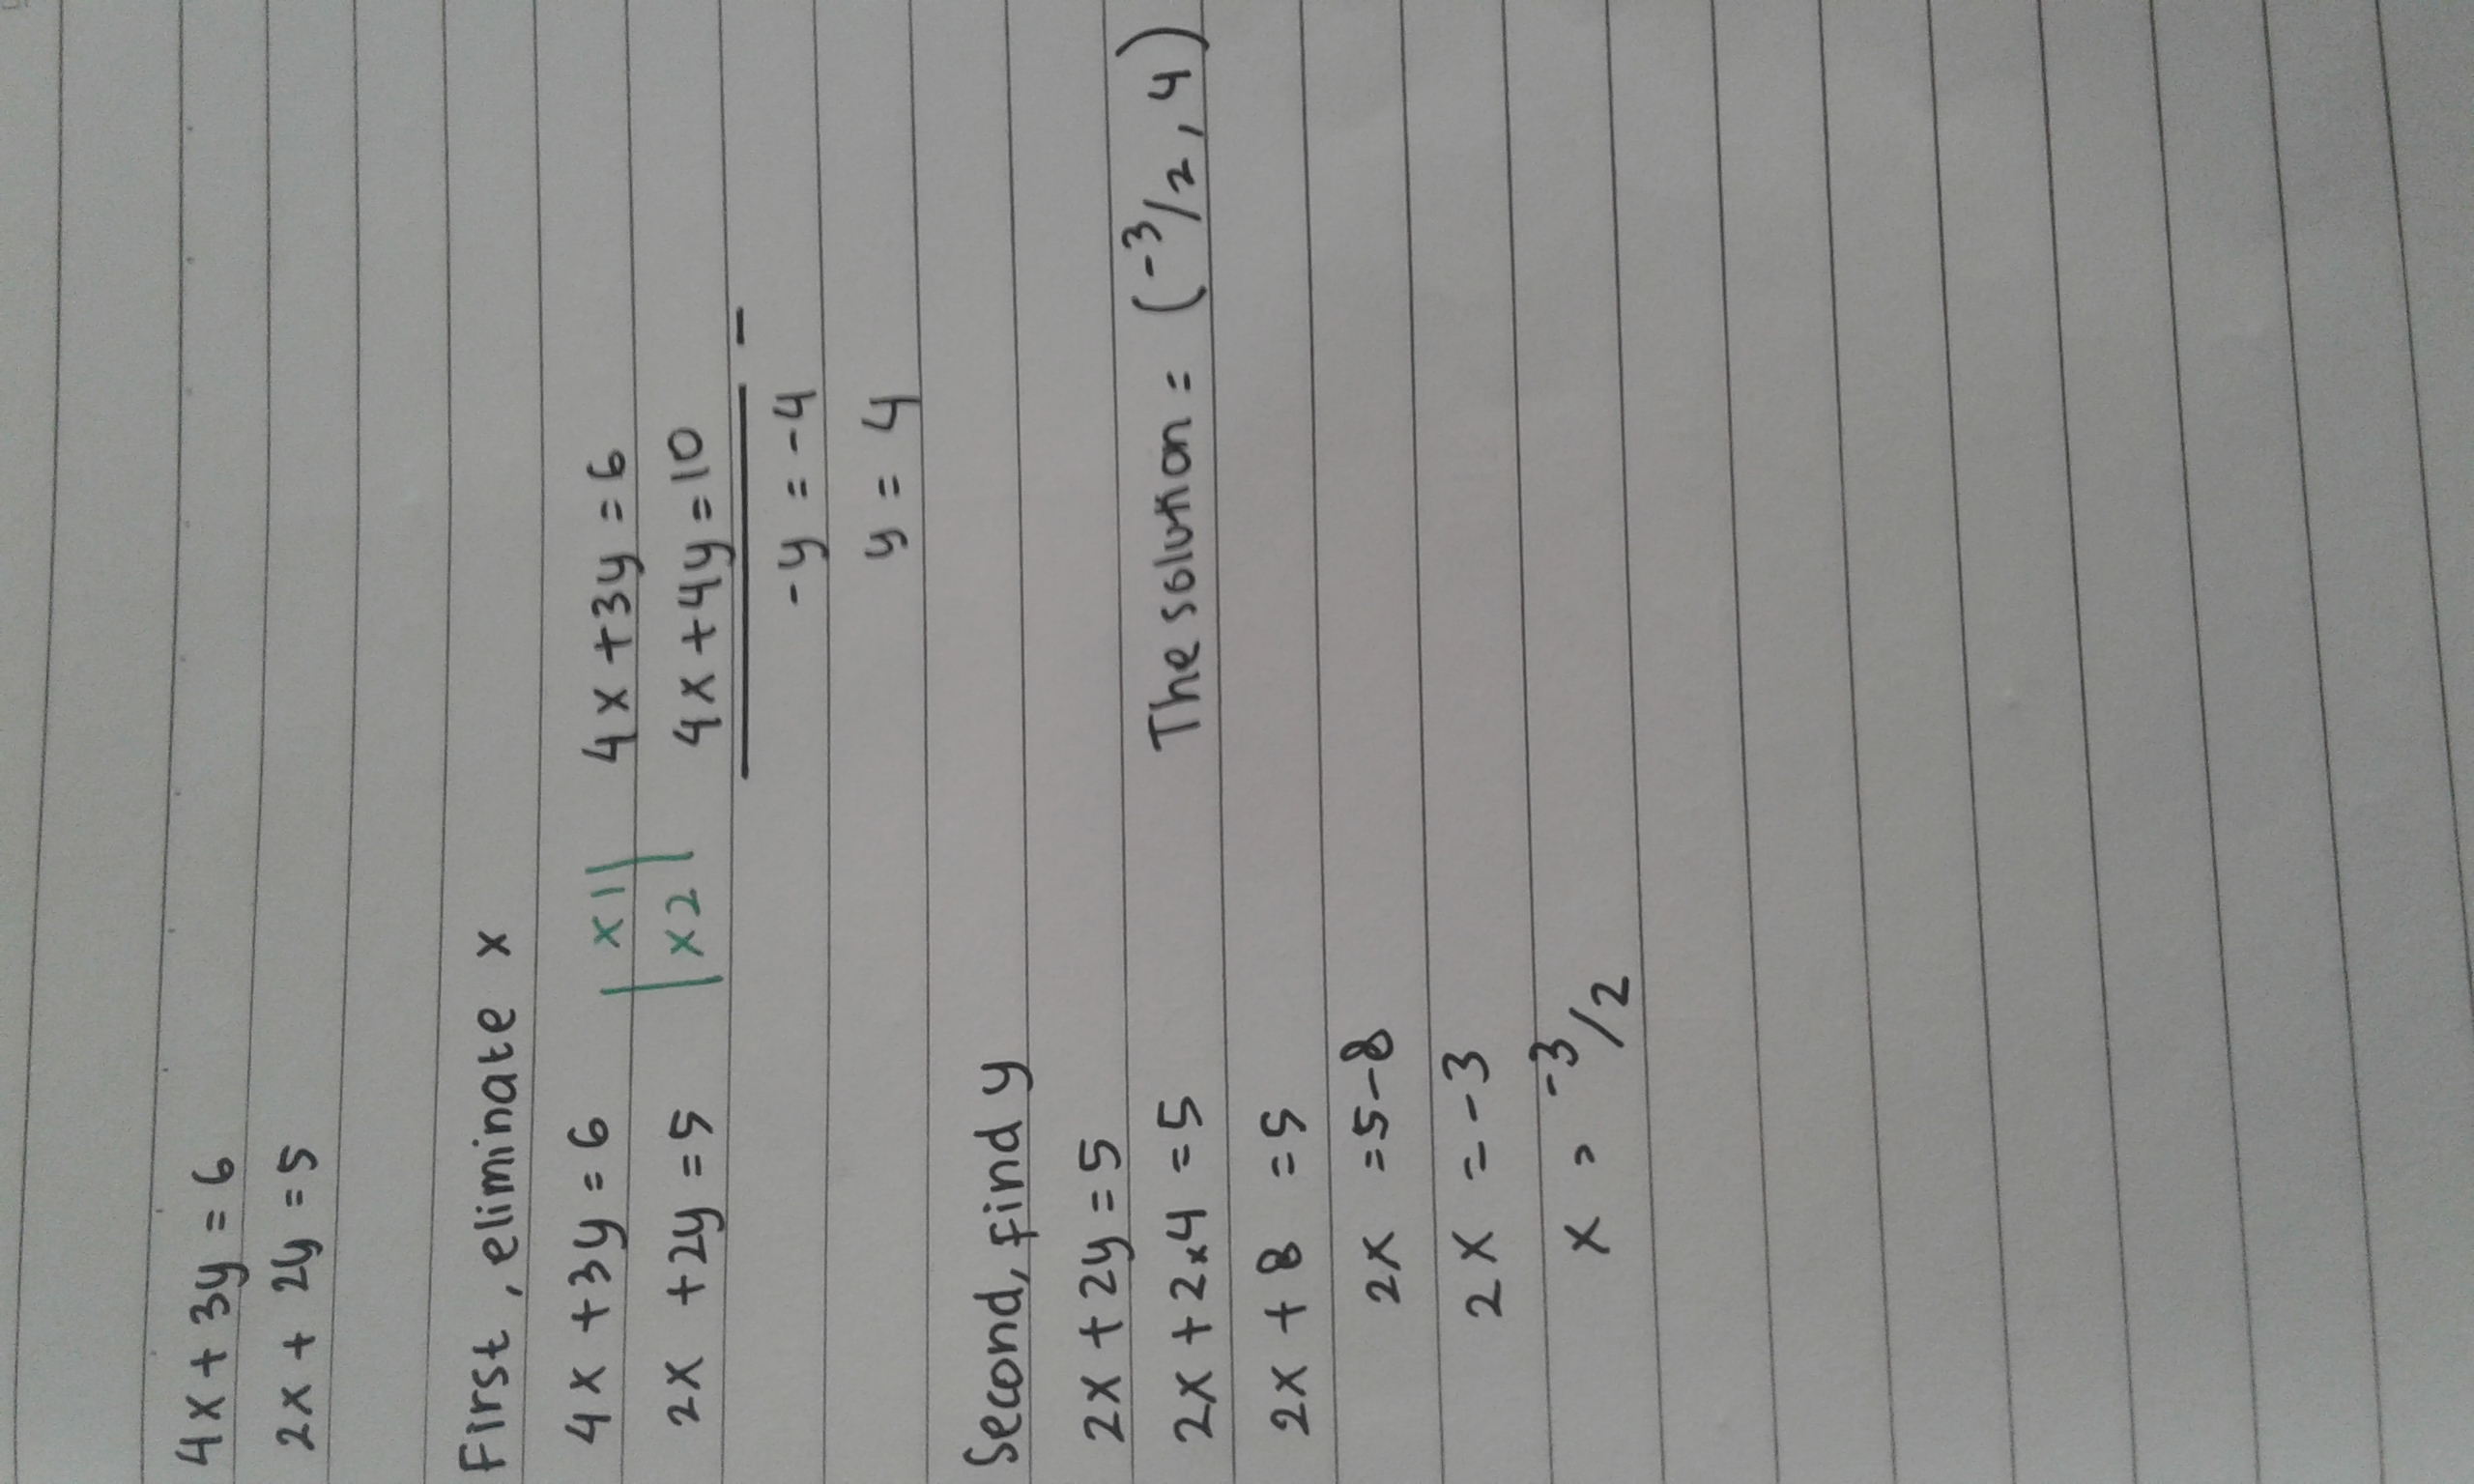 4x + 3y = 6
2x + 2y = 5
First, eliminate x
4x + 3y = 6 | x1 | 4x + 3y = 6
2x + 2y = 5 | x2 | 4x + 4y = 10
-
-y = -4
y = 4
Second, find y
2x + 2y = 5
2x + 2x4 = 5 The solution = (-3/2, 4)
2x + 8 = 5
2x = 5-8
2x = -3
x = -3/2